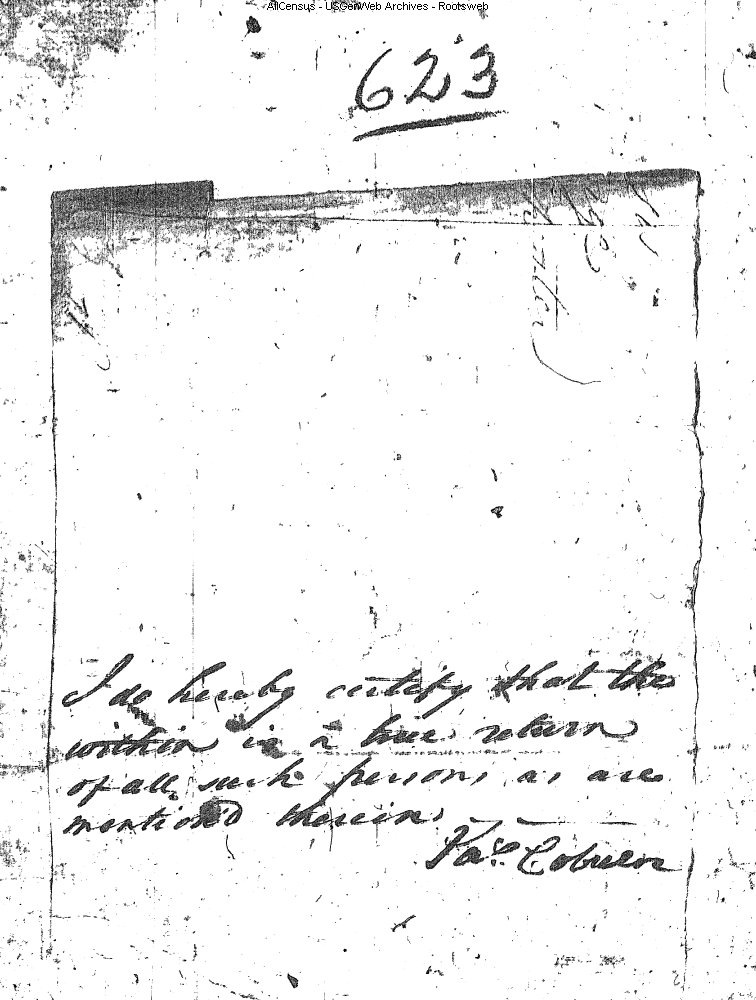 AllCensus - USGenWeb Archives - Rootsweb
623
I do hereby certify that the
within is a true return
of all such persons as are
mentiond therein.
Jas. Coburn